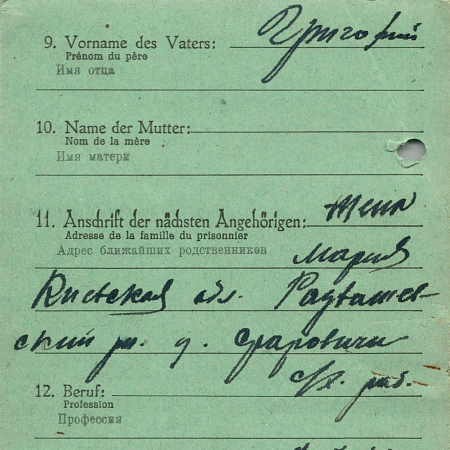 9. Vorname des Vaters: Григорий
Prénom du père
Имя отца
10. Name der Mutter:
Nom de la mère
Имя матери
11. Anschrift der nächsten Angehörigen: Жена
Adresse de la famille du prisonnier
Адрес ближайших родственников Мария
Киевская обл.
ский д.
12. Beruf: с/х. раб.
Profession
Профессия